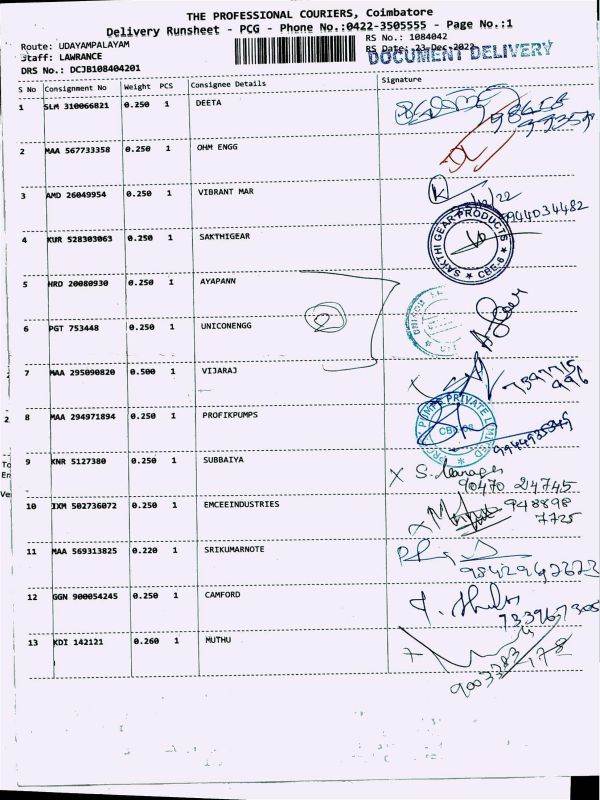 THE PROFESSIONAL COURIERS, Coimbatore
Delivery Runsheet - PCG - Phone No.:0422-3505555 - Page No.:1
Route: UDAYAMPALAYAM RS No.: 1084042
Staff: LAWRANCE RS Date: 23-Dec-2022
DOCUMENT DELIVERY
DRS No.: DCJB108404201
S No Consignment No Weight PCS Consignee Details Signature
1 SLM 310066821 0.250 1 DEETA
2 MAA 567733358 0.250 1 OHM ENGG
3 AMD 26049954 0.250 1 VIBRANT MAR
4 KUR 528303063 0.250 1 SAKTHIGEAR
SAKTHI GEAR PRODUCTS CBE-6
5 HRD 20080930 0.250 1 AYAPANN
6 PGT 753448 0.250 1 UNICONENGG
2
7 MAA 295090820 0.500 1 VIJARAJ
8 MAA 294971894 0.250 1 PROFIKPUMPS
PUMPS PRIVATE LIMITED
9 KNR 5127380 0.250 1 SUBBAIYA
90470 24745
10 IXM 502736072 0.250 1 EMCEEINDUSTRIES
948898
7725
11 MAA 569313825 0.220 1 SRIKUMARNOTE
12 GGN 900054245 0.250 1 CAMFORD
13 KDI 142121 0.260 1 MUTHU